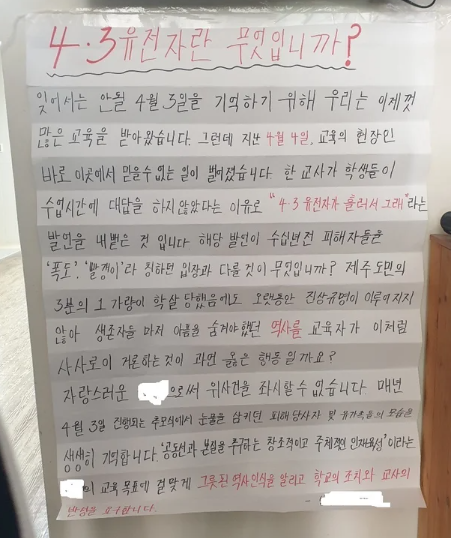 4·3 유전자란 무엇입니까?
잊어서는 안될 4월 3일을 기억하기 위해 우리는 이제껏
많은 교육을 받아왔습니다. 그런데 지난 4월 4일, 교육의 현장인
바로 이곳에서 믿을 수 없는 일이 벌어졌습니다. 한 교사가 학생들이
수업시간에 대답을 하지 않았다는 이유로 "4·3 유전자가 흘러서 그래"라는
발언을 내뱉은 것 입니다. 해당 발언이 수십년전 피해자들을
'폭도', '빨갱이'라 칭하던 입장과 다를 것이 무엇입니까? 제주도민의
3분의 1 가량이 학살 당했음에도 오랫동안 진상규명이 이루어지지
않아 생존자들 마저 아픔을 숨겨야했던 역사를 교육자가 이처럼
사사로이 거론하는 것이 과연 옳은 행동일까요?
자랑스러운 으로써 위 사건을 좌시할 수 없습니다. 매년
4월 3일 진행되는 추모식에서 눈물을 삼키던 피해 당사자 및 유가족들의 모습을
생생히 기억합니다. '공동선과 본질을 추구하는 창조적이고 주체적인 인재육성'이라는
의 교육 목표에 걸맞게 그릇된 역사인식을 알리고 학교의 조치와 교사의
반성을 요구합니다.